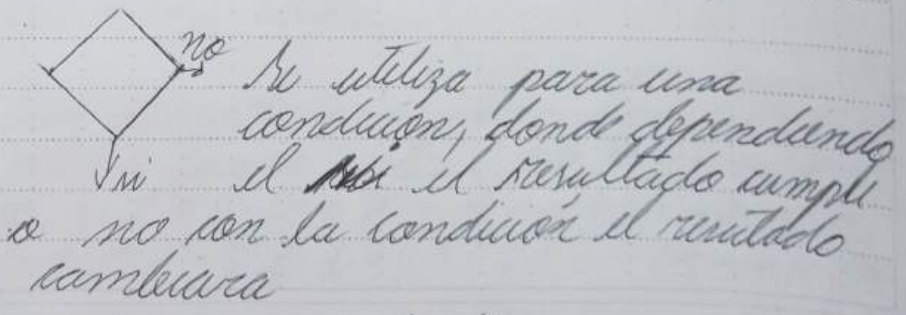 no
Se utiliza para una
condición, donde dependiendo
si el el resultado cumple
o no con la condición el resultado
cambiara